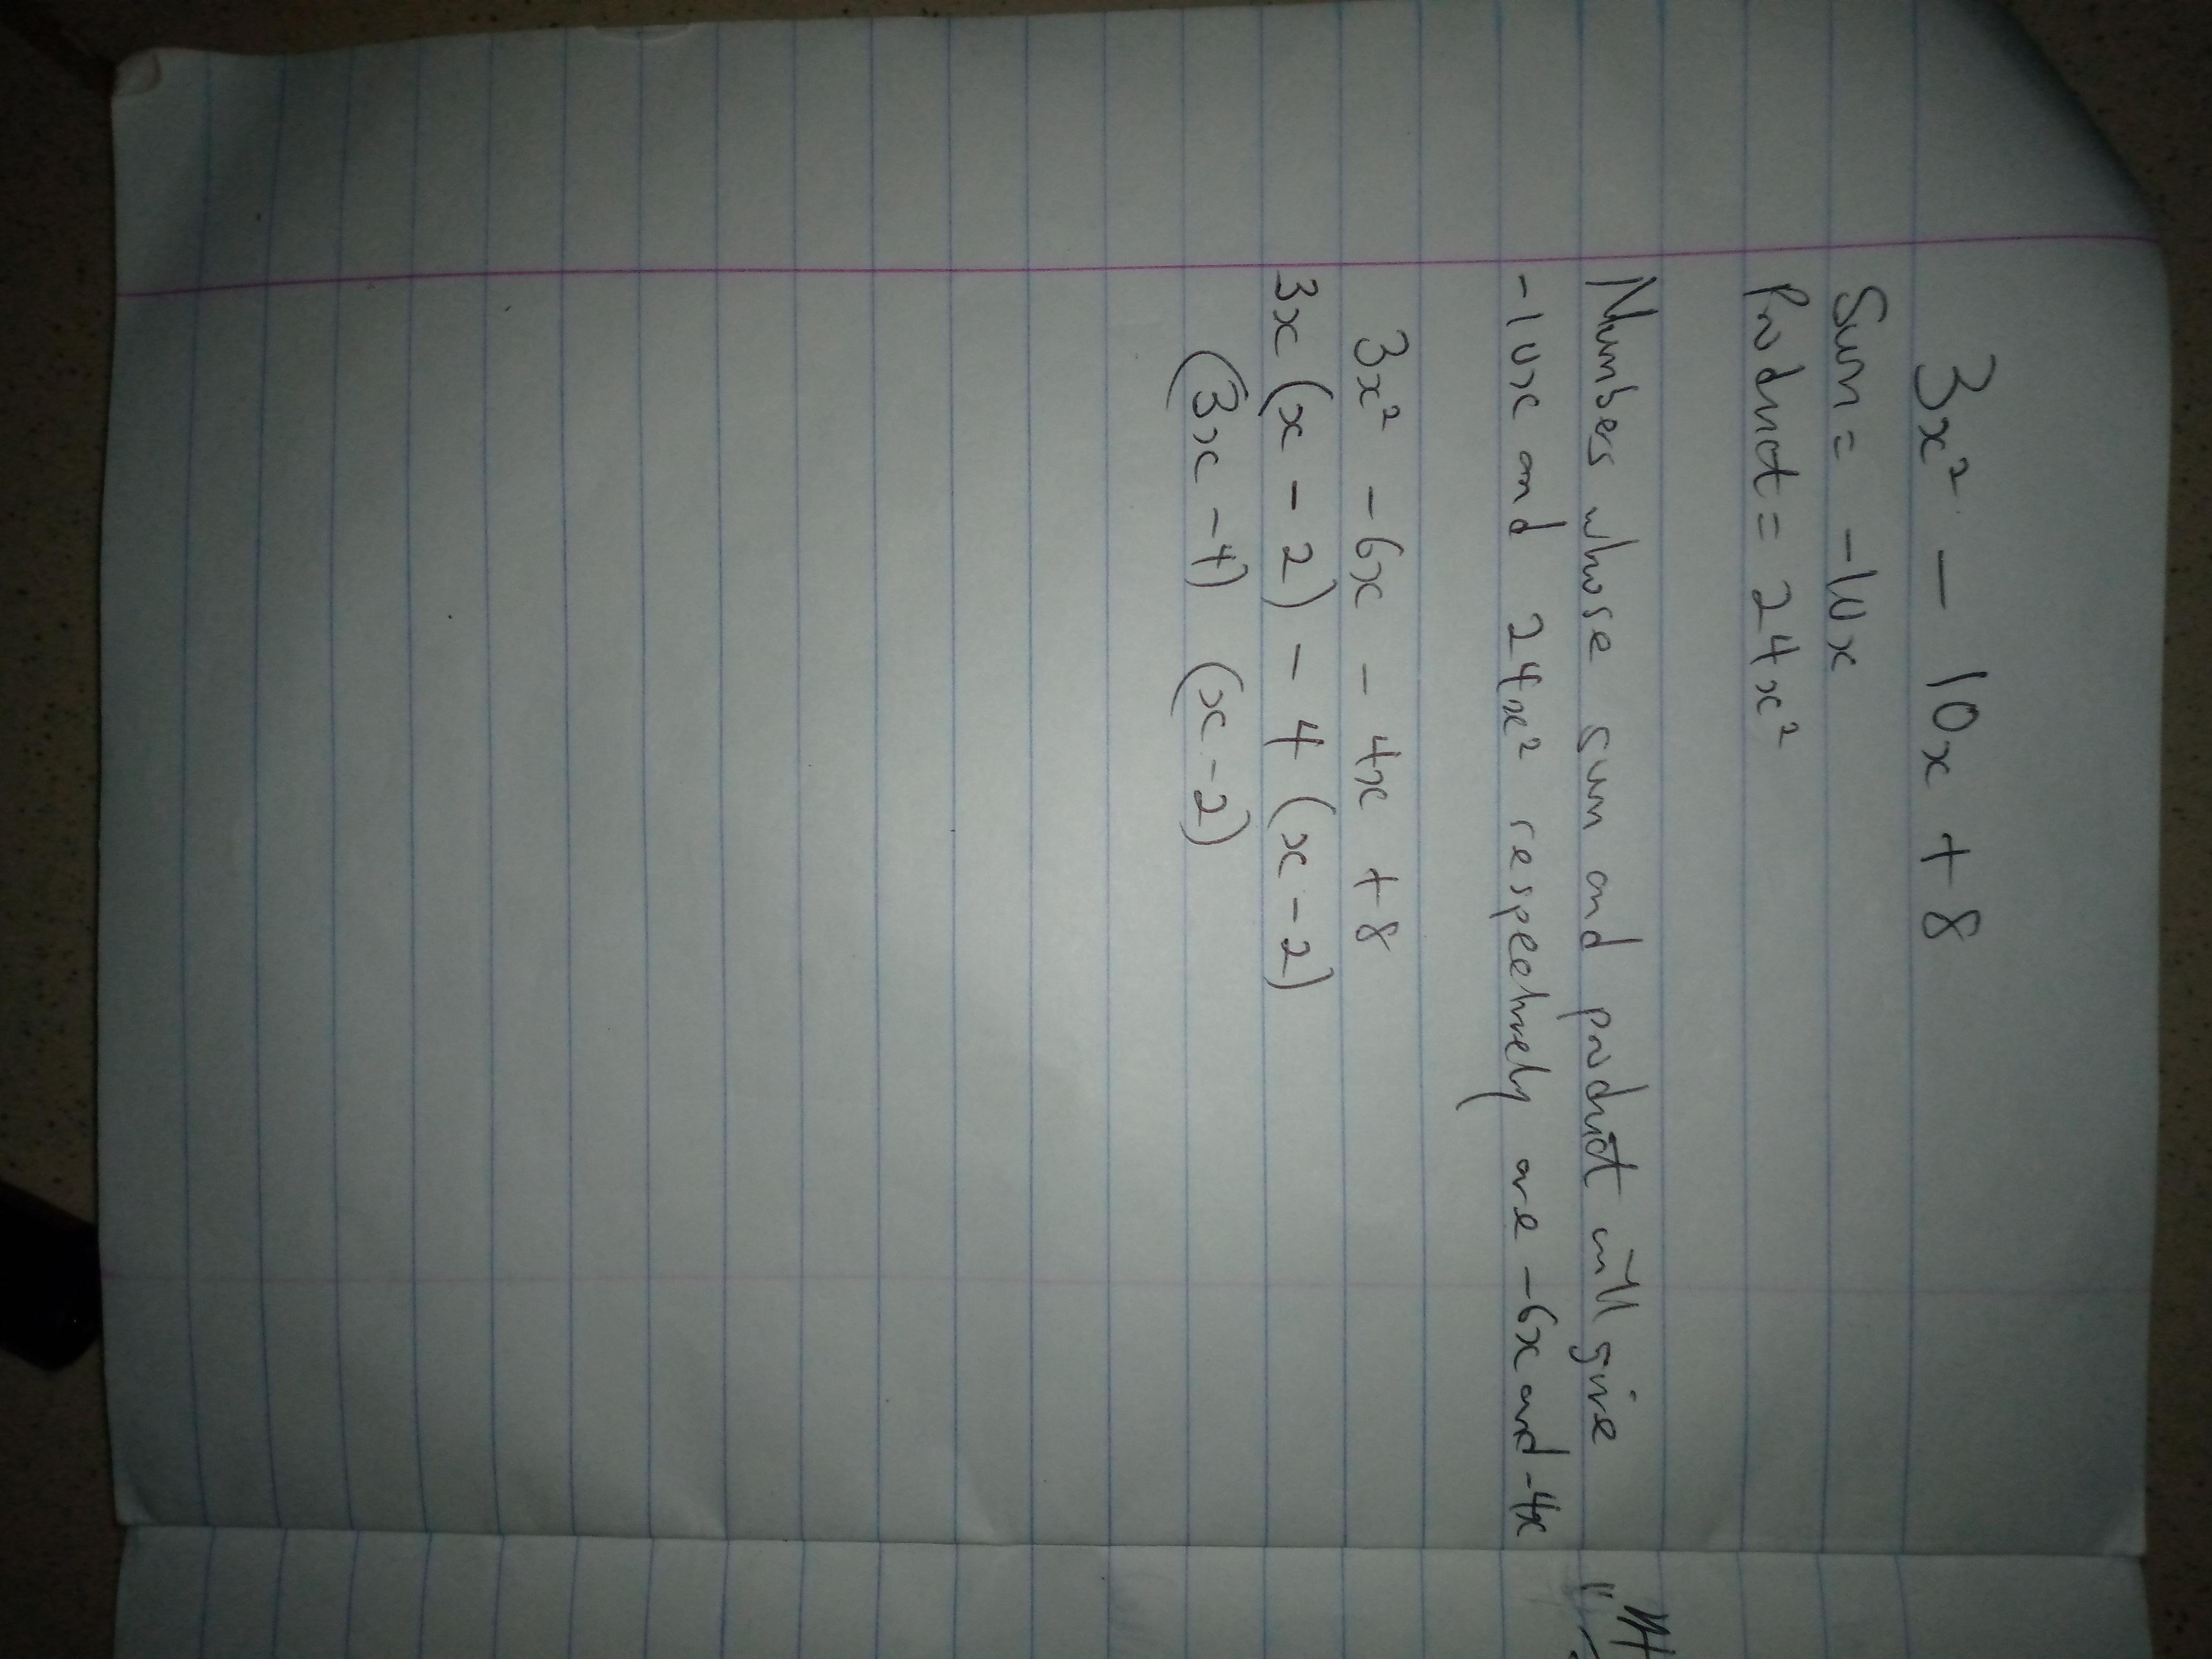 3x² - 10x + 8
Sum = -10x
Product = 24x²
Numbers whose sum and product will give
-10x and 24x² respectively are -6x and -4x
3x² - 6x - 4x + 8
3x (x - 2) - 4 (x - 2)
(3x - 4) (x - 2)